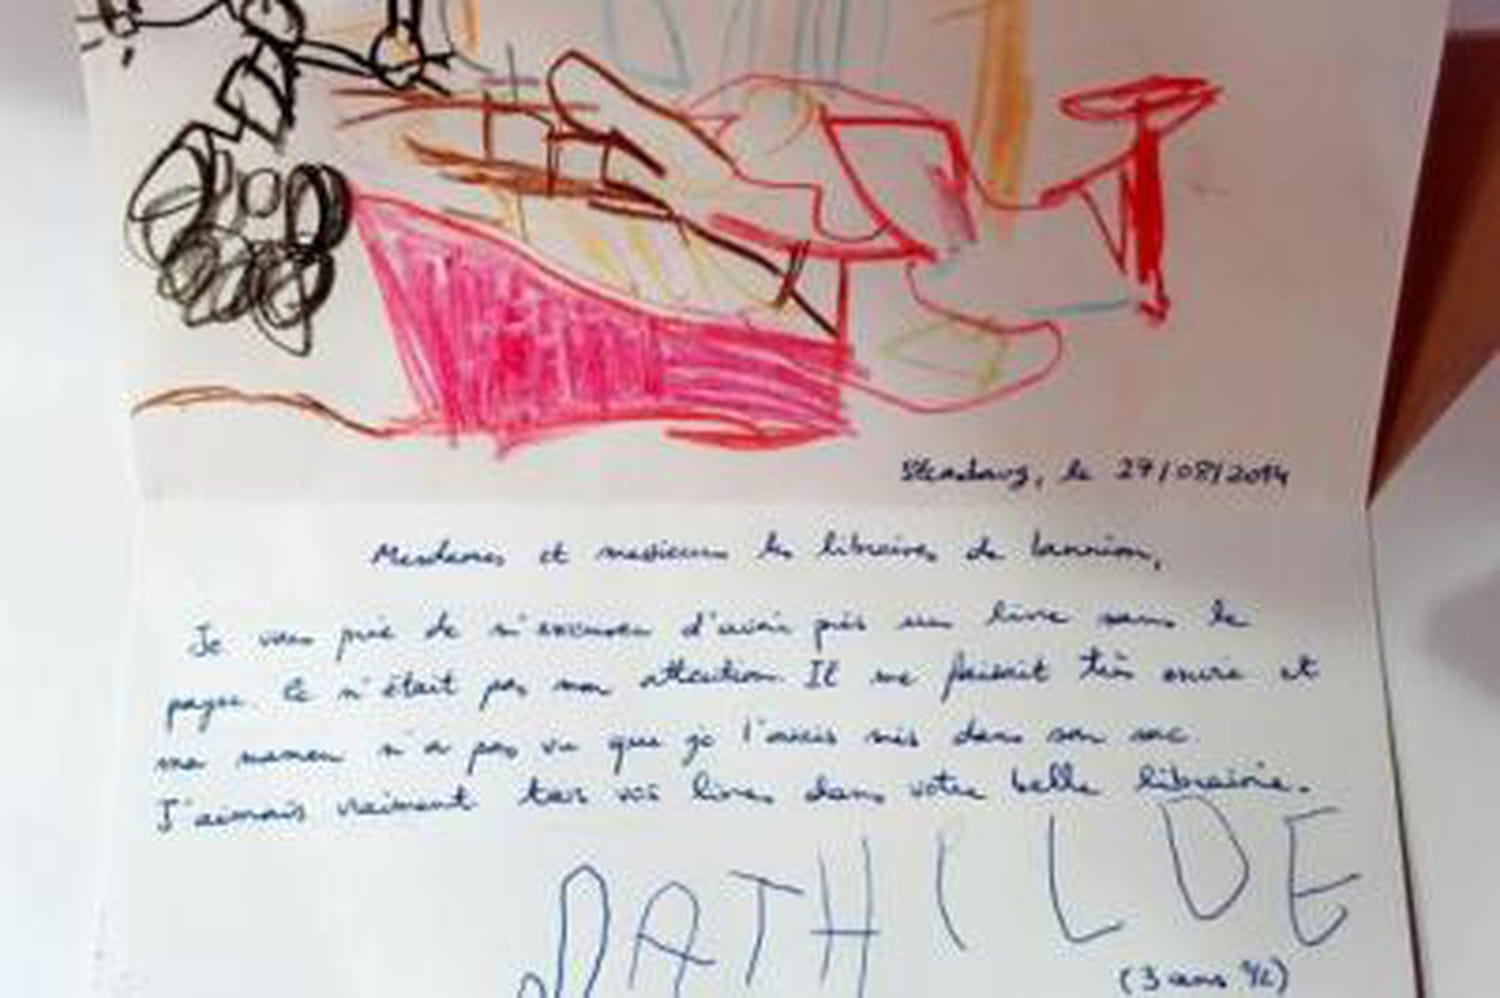 Strasbourg, le 27/08/2014
Mesdames et messieurs les libraires de Lannion,
Je vous prie de m'excuser d'avoir pris un livre sans le
payer. Ce n'était pas mon attention. Il me faisait très envie et
ma maman n'a pas vu que je l'avais mis dans son sac.
J'aimais vraiment tous vos livres dans votre belle librairie.
MATHILDE
(3 ans 1/2)